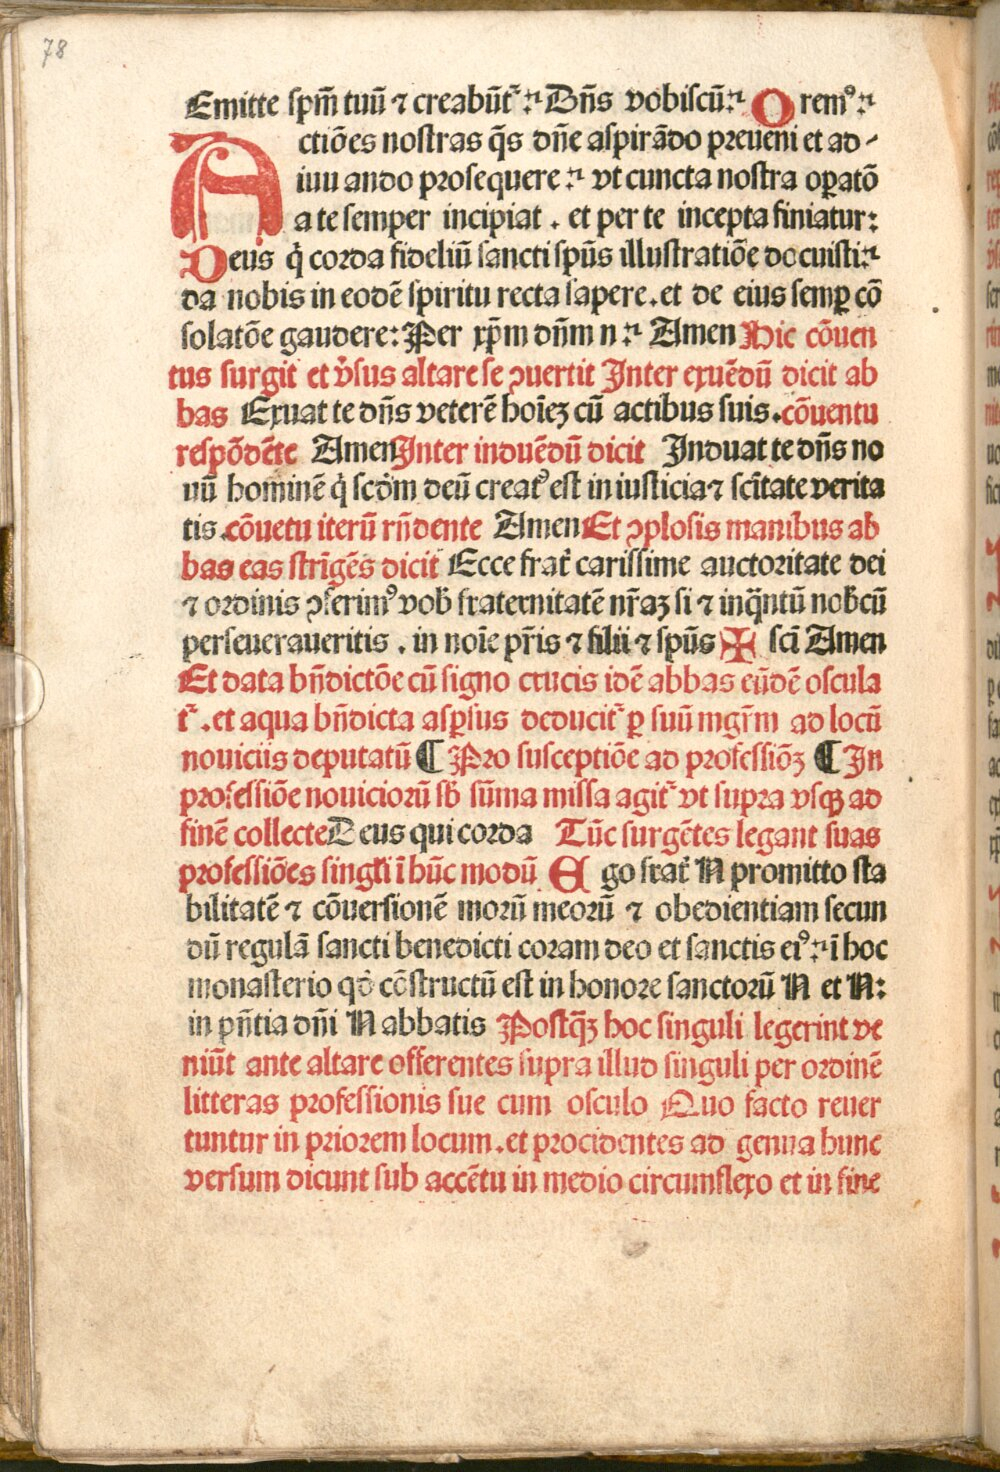 78
Emitte spm̄ tuū ⁊ creabūt᷑ :· Dn̄s vobiscū:· Oremꝰ:·
Actiōes nostras q̄s dn̄e aspirādo preueni et ad-
iuuando prosequere :· vt cuncta nostra oꝑatō
a te semper incipiat . et per te incepta finiatur:
Deus q̇ corda fideliū sancti sp̄us illustratiōe docuisti:·
da nobis in eodē spiritu recta sapere. et de eius semꝑ cō
solatōe gaudere: Per xp̄m dn̄m n :· Amen Hic cōuen
tus surgit et v̓sus altare se ꝯuertit Inter exuēdū dicit ab
bas Exuat te dn̄s veterē hoīeꝫ cū actibus suis. cōuentu
respōdēte Amen Inter induēdū dicit Induat te dn̄s no
uū hominē q̇ scd̄m deū creatꝰ est in iusticia ⁊ sc̄itate verita
tis . cōuētu iterū rn̄dente Amen Et ꝯplosis manibus ab
bas eas strīgēs dicit Ecce frat᷑ carissime auctoritate dei
⁊ ordinis ꝯferimꝰ vob̄ fraternitatē nr̄aꝫ si ⁊ inq̄ntū nob̄cū
perseueraueritis . in noīe pr̄is ⁊ filii ⁊ sp̄us ✠ sc̄i Amen
Et data bn̄dictōe cū signo crucis idē abbas eūdē oscula
t᷑ . et aqua bn̄dicta asꝑsus deducit᷑ ꝑ suū mgr̄m ad locū
nouiciis deputatū ¶ Pro susceptiōe ad professiōꝫ ¶ In
professiōe nouiciorū sb̄ sūma missa agit᷑ vt supra vsqꝫ ad
finē collecte Deus qui corda Tūc surgētes legant suas
professiōes singl̄i ī hūc modū Ego frat᷑ N promitto sta
bilitatē ⁊ cōuersionē morū meorū ⁊ obedientiam secun
dū regulā sancti benedicti coram deo et sanctis eiꝰ :· ī hoc
monasterio qd̓ cōstructū est in honore sanctorū N et N:
in pn̄tia dn̄i N abbatis Postq̄ꝫ hoc singuli legerint ve
niūt ante altare offerentes supra illud singuli per ordinē
litteras professionis sue cum osculo Quo facto reuer
tuntur in priorem locum . et procidentes ad genua hunc
versum dicunt sub accētu in medio circumflexo et in fine